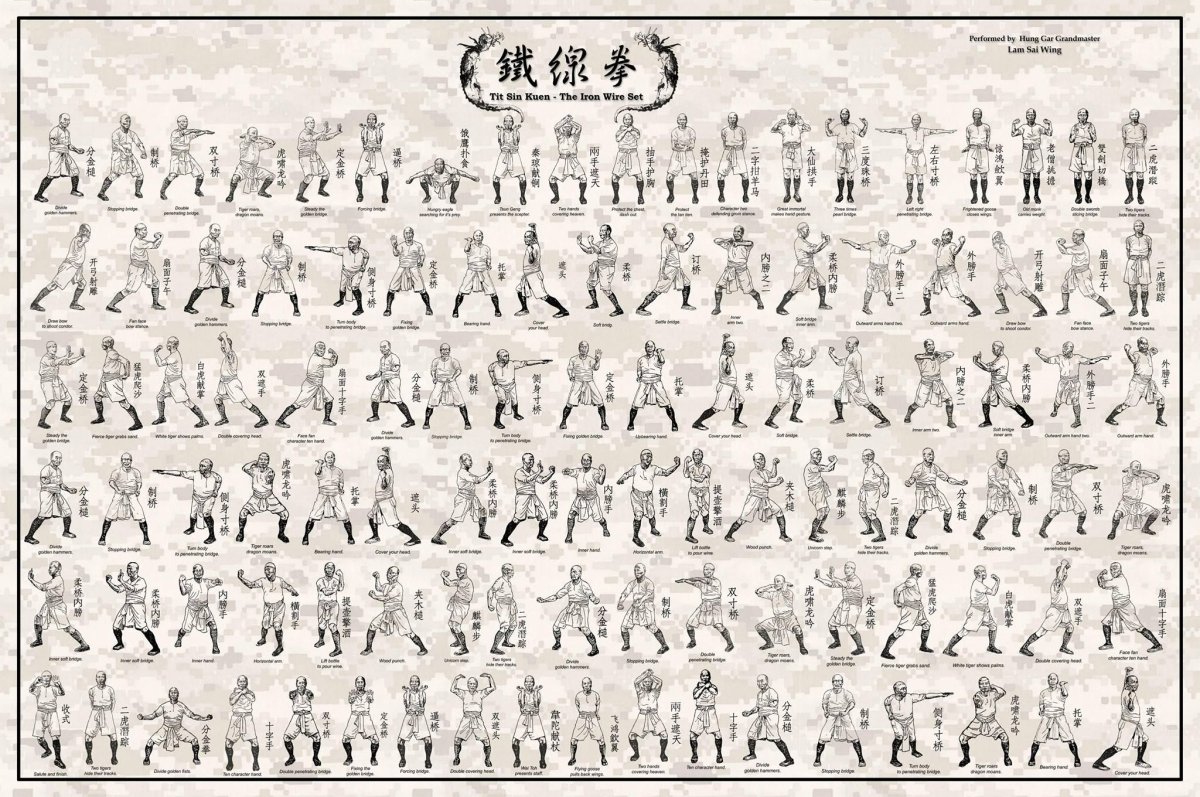 鐵線拳
Tit Sin Kuen - The Iron Wire Set
Performed by Hung Gar Grandmaster
Lam Sai Wing
分金槌
Divide
golden hammers.
制桥
Stopping bridge.
双寸桥
Double
penetrating bridge.
虎啸龙吟
Tiger roars,
dragon moans.
定金桥
Steady the
golden bridge.
逼桥
Forcing bridge.
饿鹰扑食
Hungry eagle
searching for it's prey.
秦琼献锏
presents the scepter.
兩手遮天
Two hands
covering heaven.
抽手护胸
Protect the chest,
掩护丹田
Protect
the tan tien.
二字拑羊马
Character two
defending groin stance.
大仙拱手
Great immortal
makes hand gesture.
三度珠桥
Three times
pearl bridge.
左右寸桥
Left right
penetrating bridge.
惊鸿歛翼
Frightened goose
closes wings.
老僧挑擔
Old monk
carries weight.
雙劍切橋
Double swords
slicing bridge.
二虎潛蹤
Two tigers
hide their tracks.
开弓射雕
Draw bow
to shoot condor.
扇面子午
Fan face
bow stance.
分金槌
Divide
golden hammers.
制桥
Stopping bridge.
侧身寸桥
Turn body
to penetrating bridge.
定金桥
Fixing
golden bridge.
托掌
Bearing hand.
遮头
Cover
your head.
柔桥
Soft bridg.
订桥
Settle bridge.
内膀之二
Inner
arm two.
柔桥内膀
Soft bridge
inner arm.
外膀手二
Outward arms hand two.
外膀手
Outward arms hand.
开弓射雕
Draw bow
to shoot condor.
扇面子午
Fan face
bow stance.
二虎潛踪
Two tigers
hide their tracks.
定金桥
Steady the
golden bridge.
猛虎爬沙
Fierce tiger grabs sand.
白虎献掌
White tiger shows palms.
双遮手
Double covering head.
扇面十字手
Face fan
character ten hand.
分金槌
Divide
golden hammers.
制桥
Stopping bridge.
侧身寸桥
Turn body
to penetrating bridge.
定金桥
Fixing golden bridge.
托掌
Upbearing hand.
遮头
Cover your head.
柔桥
Soft bridge.
订桥
Settle bridge.
内膀之二
Inner arm two.
柔桥内膀
Soft bridge
inner arm.
外膀手二
Outward arm hand two.
外膀手
Outward arm hand.
分金槌
Divide
golden hammers.
制桥
Stopping bridge.
侧身寸桥
Turn body
to penetrating bridge.
虎啸龙吟
Tiger roars
dragon moans.
托掌
Bearing hand.
遮头
Cover your head.
柔桥内膀
Inner soft bridge.
柔桥内膀
Inner soft bridge.
内膀手
Inner hand.
橫割手
Horizontal arm.
提壶擎酒
Lift bottle
to pour wine.
夹木槌
Wood punch.
麒麟步
Unicorn step.
二虎潛踪
Two tigers
hide their tracks.
分金槌
Divide
golden hammers.
制桥
Stopping bridge.
双寸桥
Double
penetrating bridge.
虎啸龙吟
Tiger roars,
dragon moans.
柔桥内膀
Inner soft bridge.
柔桥内膀
Inner soft bridge.
内膀手
Inner hand.
橫割手
Horizontal arm.
提壶擎酒
Lift bottle
to pour wine.
夹木槌
Wood punch.
麒麟步
Unicorn step.
二虎潛踪
Two tigers
hide their tracks.
分金槌
Divide
golden hammers.
制桥
Stopping bridge.
双寸桥
Double
penetrating bridge.
虎啸龙吟
Tiger roars,
dragon moans.
定金桥
Steady the
golden bridge.
猛虎爬沙
Fierce tiger grabs sand.
白虎献掌
White tiger shows palms.
双遮手
Double covering head.
扇面十字手
Face fan
character ten hand.
收式
Salute and finish.
二虎潛踪
Two tigers
hide their tracks.
分金拳
Divide golden fists.
十字手
Ten character hand.
双寸桥
Double penetrating bridge.
定金桥
Fixing the
golden bridge.
逼桥
Forcing bridge.
双遮头
Double covering head.
韋陀献杖
Wei Toh
presents staff.
飞鸿歛翼
Flying goose
pulls back wings.
兩手遮天
Two hands
covering heaven.
十字手
Ten character hand.
分金槌
Divide
golden hammers.
制桥
Stopping bridge.
侧身寸桥
Turn body
to penetrating bridge.
虎啸龙吟
Tiger roars
dragon moans.
托掌
Bearing hand.
遮头
Cover your head.